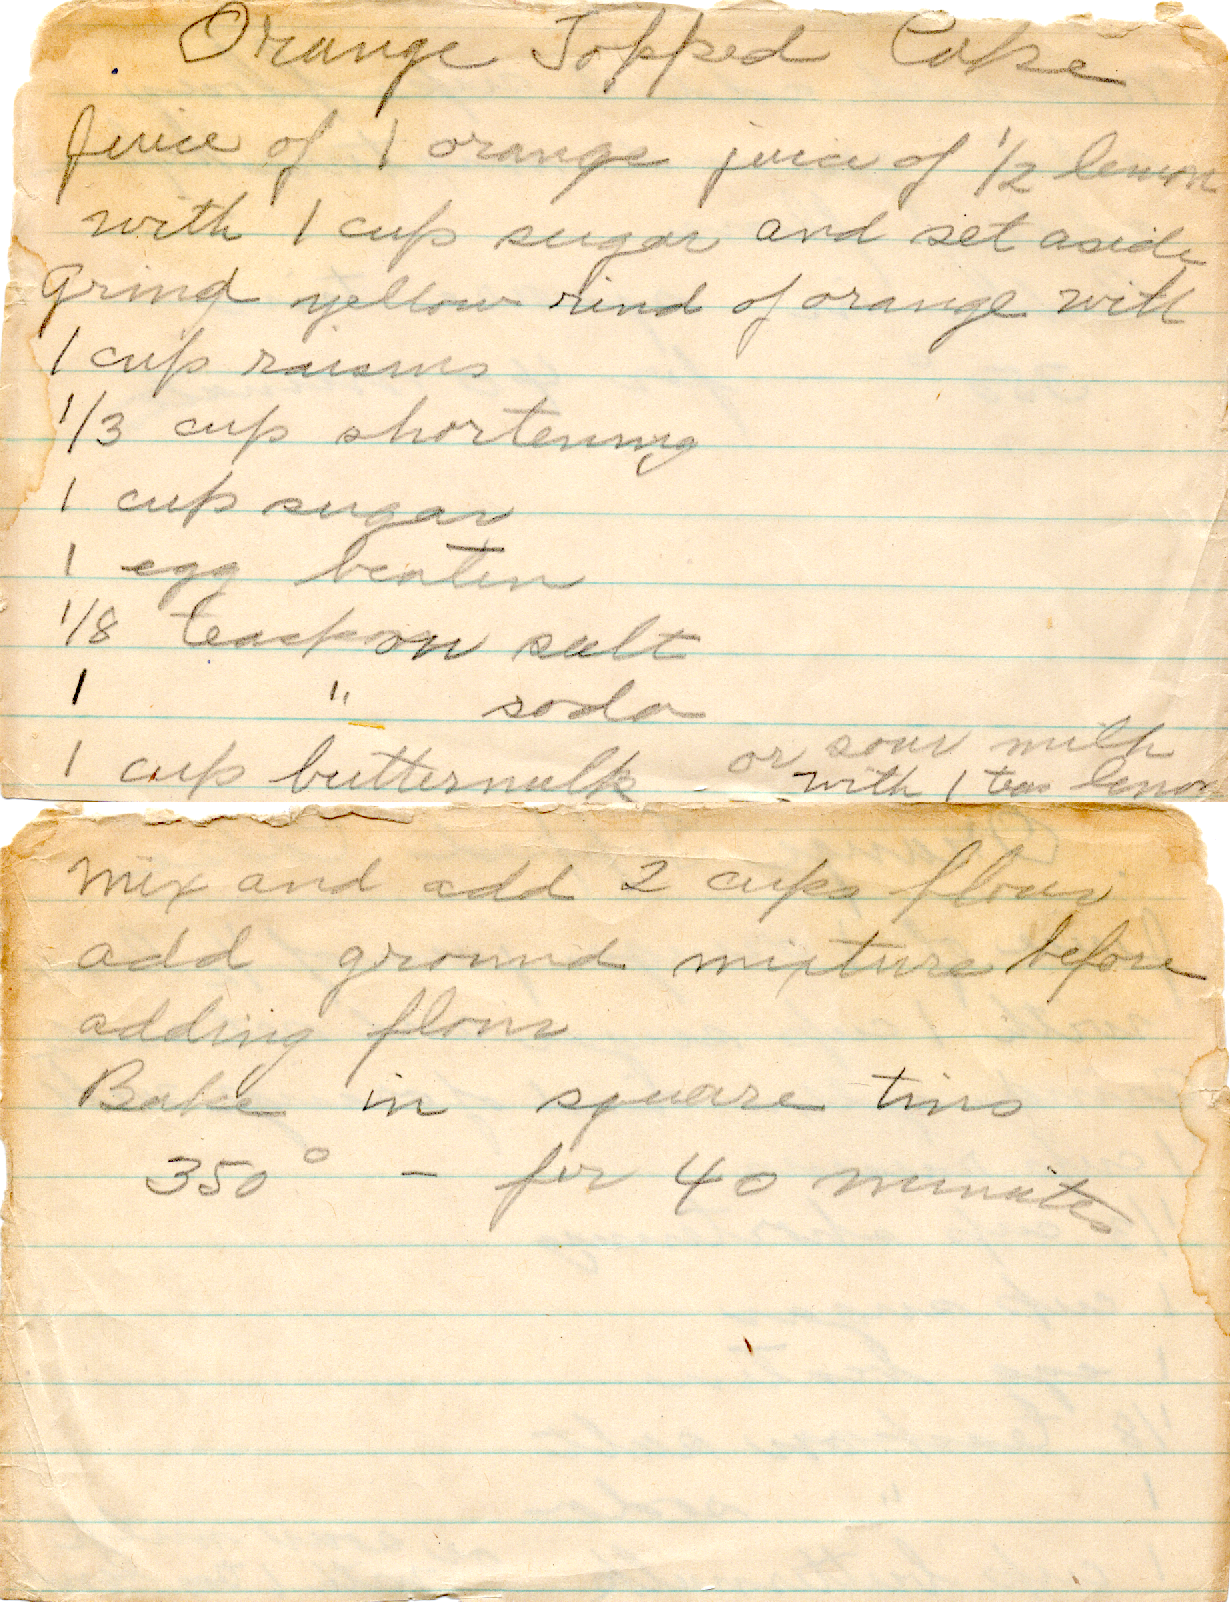 Orange Topped Cake
Juice of 1 orange juice of 1/2 lemon
with 1 cup sugar and set aside
Grind yellow rind of orange with
1 cup raisins
1/3 cup shortening
1 cup sugar
1 egg beaten
1/8 teaspoon salt
1 " soda
1 cup buttermilk or sour milk
with 1 teas lemon
Mix and add 2 cups flour
add ground mixture before
adding flour
Bake in square tins
350° - for 40 minutes